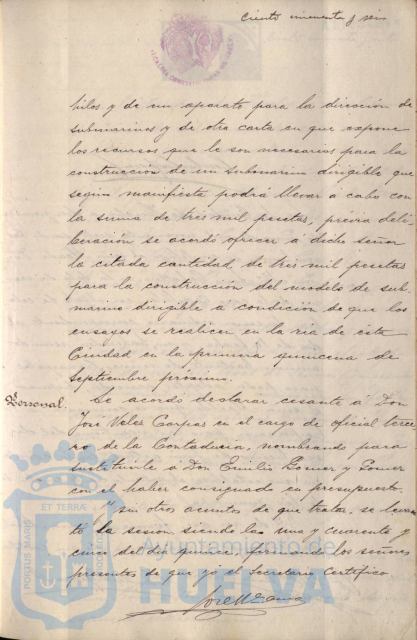 Ciento cincuenta y seis
hilos y de un aparato para la dirección de
submarinos y de otra carta en que expone
los recursos que le son necesarios para la
construcción de un submarino dirigible que
según manifiesta podrá llevar á cabo con
la suma de tres mil pesetas, previa deli-
beración se acordó ofrecer a dicho señor
la citada cantidad de tres mil pesetas
para la construcción del modelo de sub-
marino dirigible á condición de que los
ensayos se realicen en la ría de esta
Ciudad en la primera quincena de
Septiembre próximo.
Personal. Se acordó declarar cesante á Don
José Velez Carpas en el cargo de oficial terce
ro de la Contaduría, nombrando para
sustituirle a Don Emilio Gomez y Gomez
con el haber consignado en presupuesto.
Y sin otros asuntos de que tratar, se levan
tó la sesión siendo las una y cuarenta y
cinco del día quince, firmando los señores
presentes de que yo el Secretario Certifico.
PORTUS MARIS
ET TERRÆ
Ayuntamiento de
HUELVA